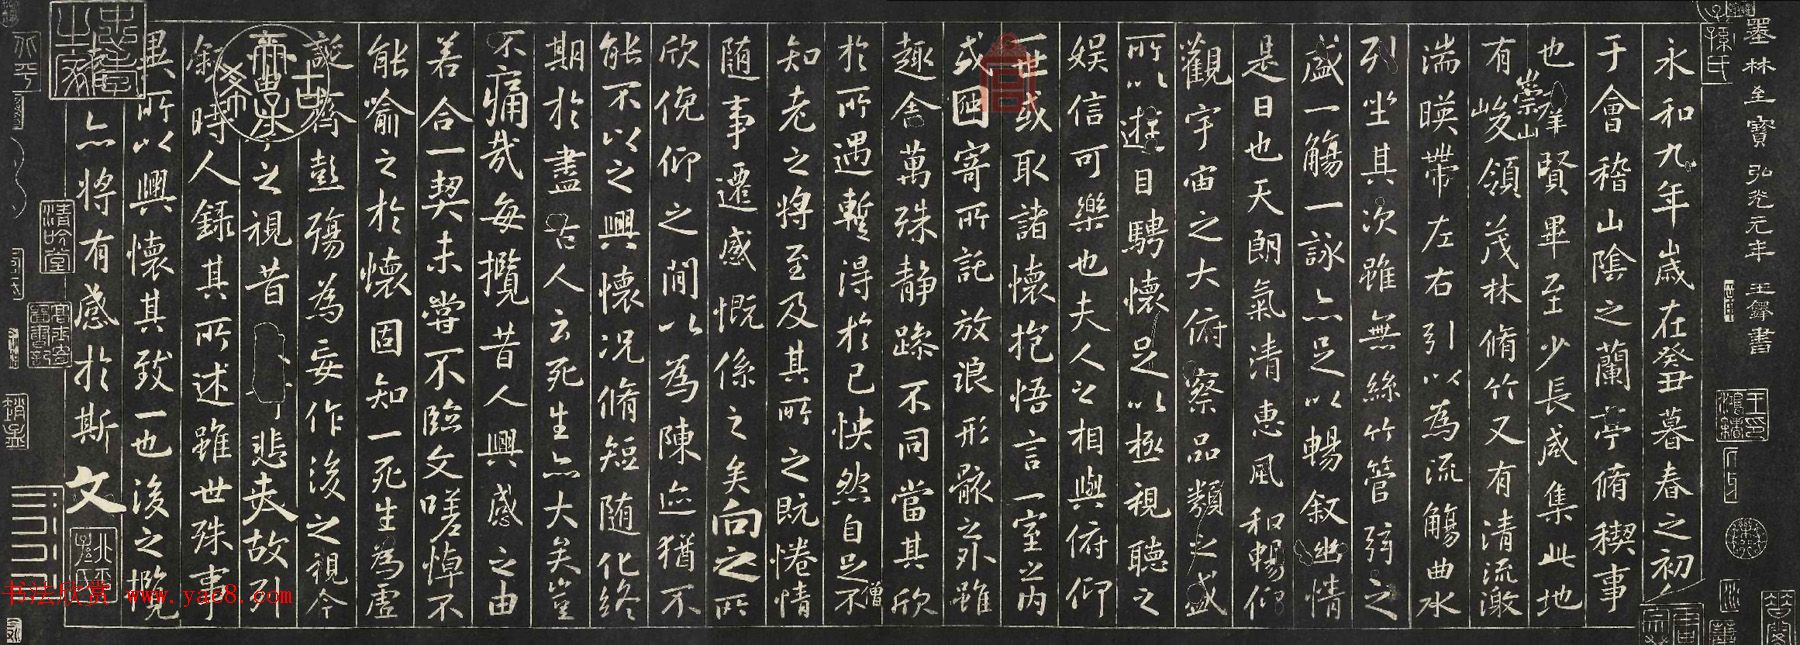 墨林至寶 弘光元年 王鐸書
永和九年歲在癸丑暮春之初
于會稽山陰之蘭亭脩稧事
也羣賢畢至少長咸集此地
有崇山峻領茂林脩竹又有清流激
湍暎帶左右引以為流觴曲水
列坐其次雖無絲竹管弦之
盛一觴一詠亦足以暢叙幽情
是日也天朗氣清惠風和暢仰
觀宇宙之大俯察品類之盛
所以遊目騁懷足以極視聽之
娛信可樂也夫人之相與俯仰
一世或取諸懷抱悟言一室之內
或因寄所託放浪形骸之外雖
趣舍萬殊静躁不同當其欣
於所遇蹔得於己怏然自足不
僧
知老之將至及其所之既惓情
隨事遷感慨係之矣向之所
欣俛仰之閒以為陳迹猶不
能不以之興懷況脩短隨化終
期於盡古人云死生亦大矣豈
不痛哉每攬昔人興感之由
若合一契未甞不臨文嗟悼不
能喻之於懷固知一死生為虛
誕齊彭殤為妄作後之視今
亦由今之視昔悲夫故列
叙時人錄其所述雖世殊事
異所以興懷其致一也後之攬
者亦將有感於斯文
清吟堂
孫氏
书法欣赏 www.yac8.com